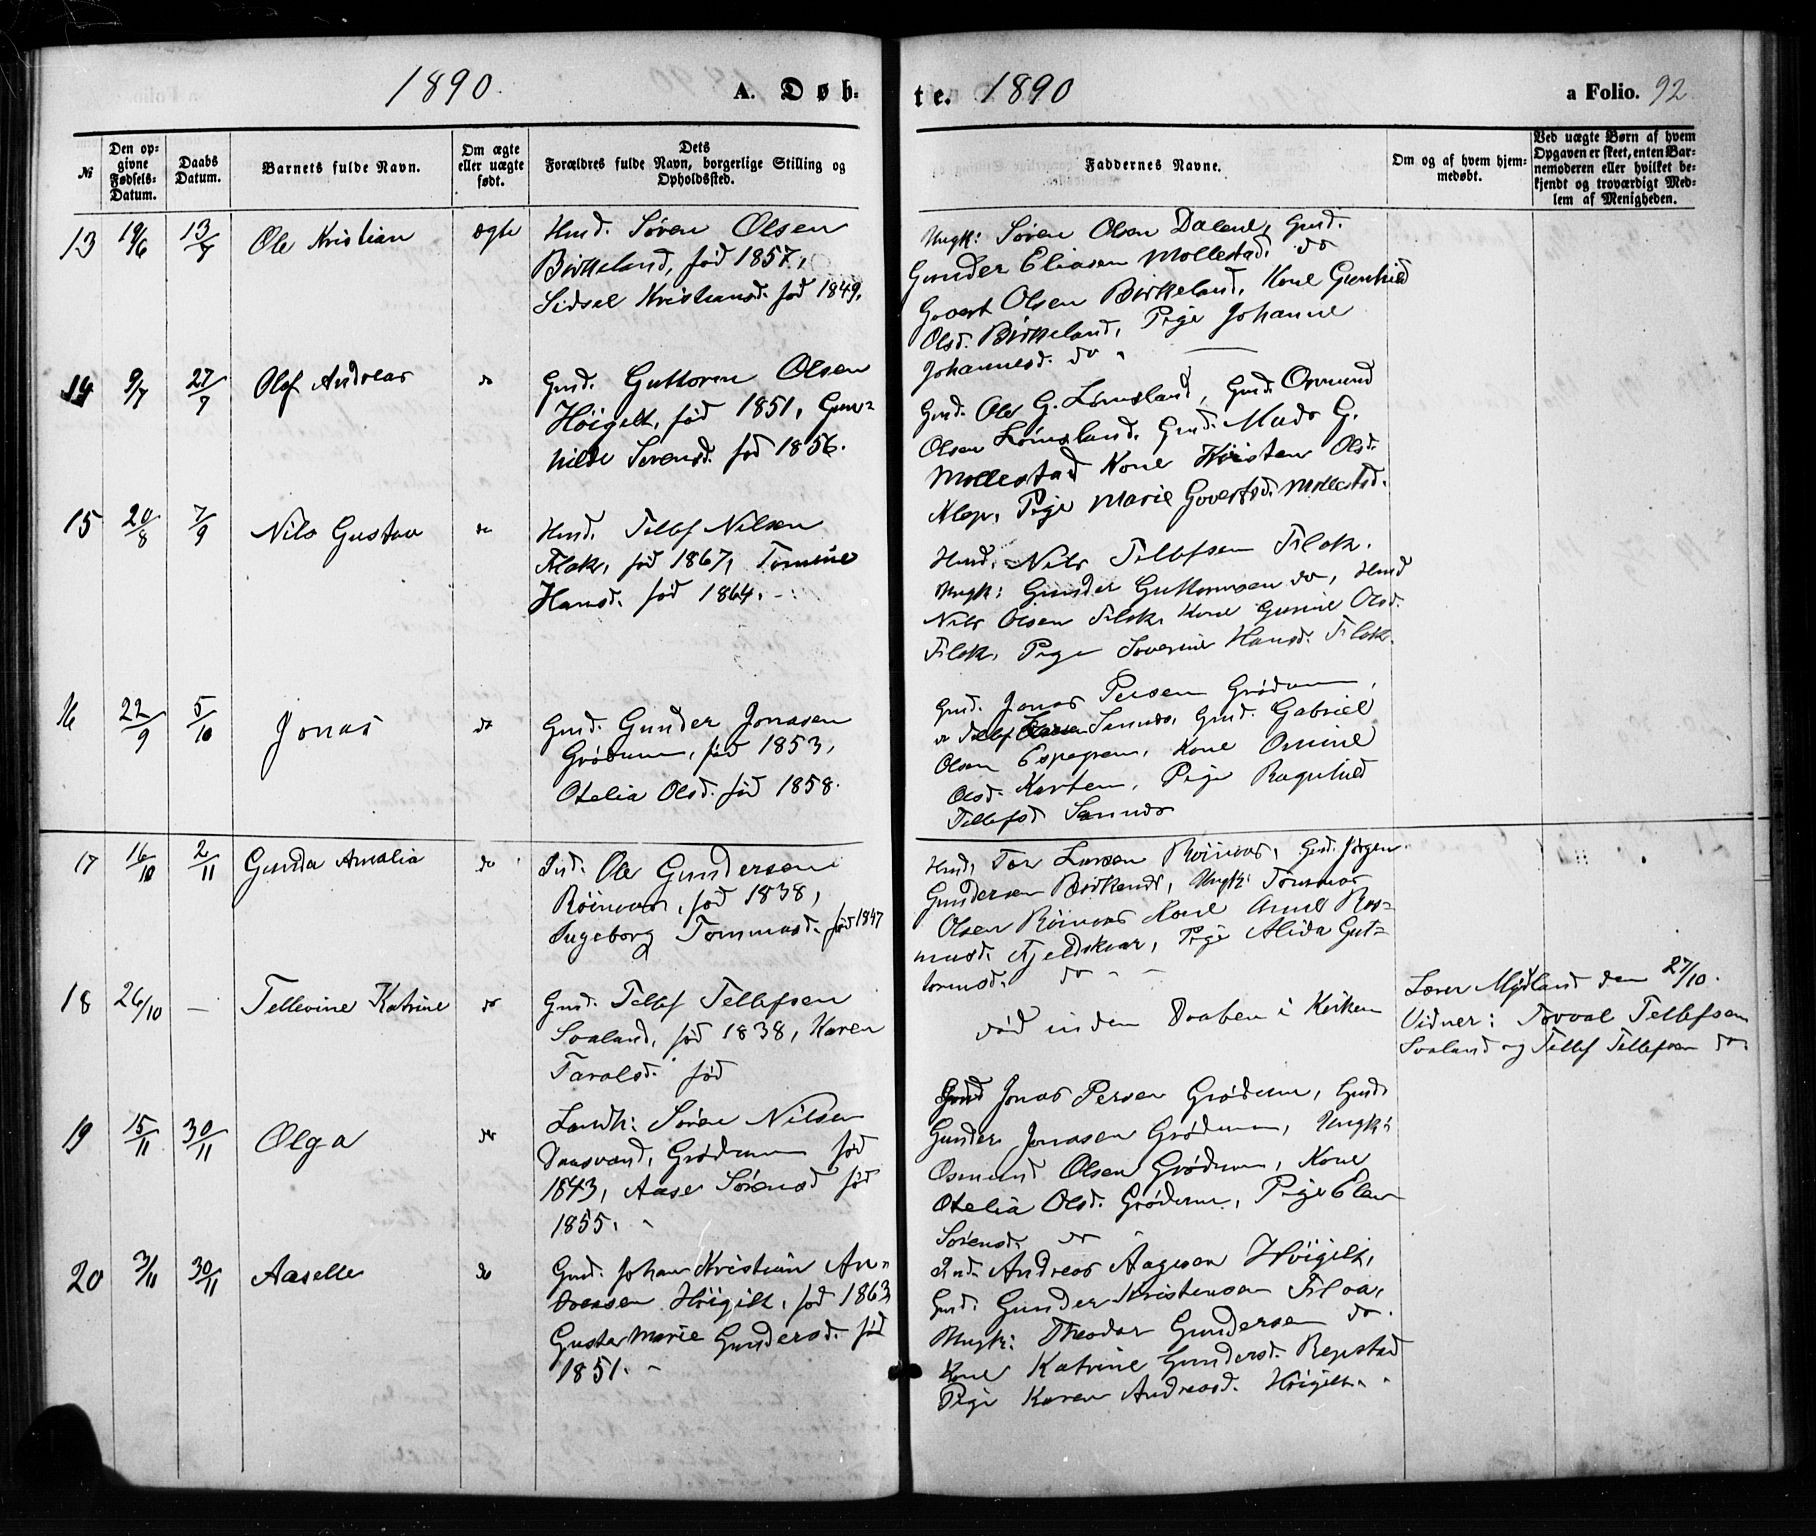 1890
A. Døb-
te. 1890
a Folio. 92
№
Den op-
givne
Fødsels-
Datum.
Daabs
Datum.
Barnets fulde Navn.
Om ægte
eller uægte
født.
Dets
Forældres fulde Navn, borgerlige Stilling og
Opholdssted.
Faddernes Navne.
Om og af hvem hjem-
medøbt.
Ved uægte Børn af hvem
Opgaven er skeet, enten Bar-
nemoderen eller hvilket be-
kjendt og troværdigt Med-
lem af Menigheden.
13 19/6 13/7 Ole Kristian ægte
Hmd. Søren Olsen
Birkeland, fød 1857,
Sidsel Kristiansd. fød 1849.
Ungk: Søren Olsen Dalene, Gmd.
Gunder Eliasen Mollestad, do
Govert Olsen Birkeland, Kone Gunhild
Olsd. Birkeland, Pige Johanne
Johannesd. do
14 9/7 27/7 Olaf Andreas do
Gmd. Guttorm Olsen
Høigilt, fød 1851, Gun-
hilde Sørensd. fød 1856.
Gmd. Ole G. Lømsland, Gmd. Osmund
Olsen Lømsland. Gmd. Mads G.
Mollestad Kone Kristen Olsd.
Klep, Pige Marie Govertsd. Mollestad.
15 20/8 7/9 Nils Gustav do
Hmd. Tellef Nilsen
Flak, fød 1867, Tomine
Hansd. fød 1864.
Hmd. Nils Tellefsen Flak.
Ungk: Gunder Guttormsen do, Hmd
Nils Olsen Flak, Kone Gunine Olsd.
Flak, Pige Severine Hansd. Flak.
16 22/9 5/10 Jonas do
Gmd. Gunder Jonasen
Grødum, fød 1853,
Otelia Olsd. fød 1858.
Gmd. Jonas Persen Grødum,
Olsen Espegren, Kone
Olsd. Pige Ragnhild
Tellefsd
17 16/10 2/11 Gunda Amalia do
Ole Gundersen
fød 1838,
Ingeborg Tommasd. fød 1847
Hmd, Tor Larsen Gmd. Jørgen
Gundersen Ungk: Tommas
Olsen Kone Anne Ras-
musd. Fjeldskaar, Pige Alida Gut-
tormsd. do
18 26/10 — Tellevine Katrine do
Gmd. Tellef Tellefsen
Svaland, fød 1838, Karen
Taralsd. fød
død inden Daaben i Kirken
Lærer Mydland den 27/10.
Vidner: Torval Tellefsen
Svaland og Tellef Tellefsen do
19 15/11 30/11 Olga do
Søren Nilsen
Grødum fød
1843, Aase Sørensd fød
1855.
Gmd Jonas Persen Grødum, Gmd.
Gunder Jonasen Grødum, Ungk:
Osmund Olsen Grødum, Kone
Otelia Olsd. Grødum, Pige Elen
Sørensd. do
20 3/11 30/11 Aaselle do
Gmd. Johan Kristian An-
dreasen Høigilt, fød 1863
Gusta Marie Gundersd. fød
1851.
Andreas Aagesen Høigilt,
Gmd. Gunder Kristensen
Ungk: Theodor Gundersen do.
Kone Katrine Gundersd. Repstad
Pige Karen Andreasd. Høigilt.